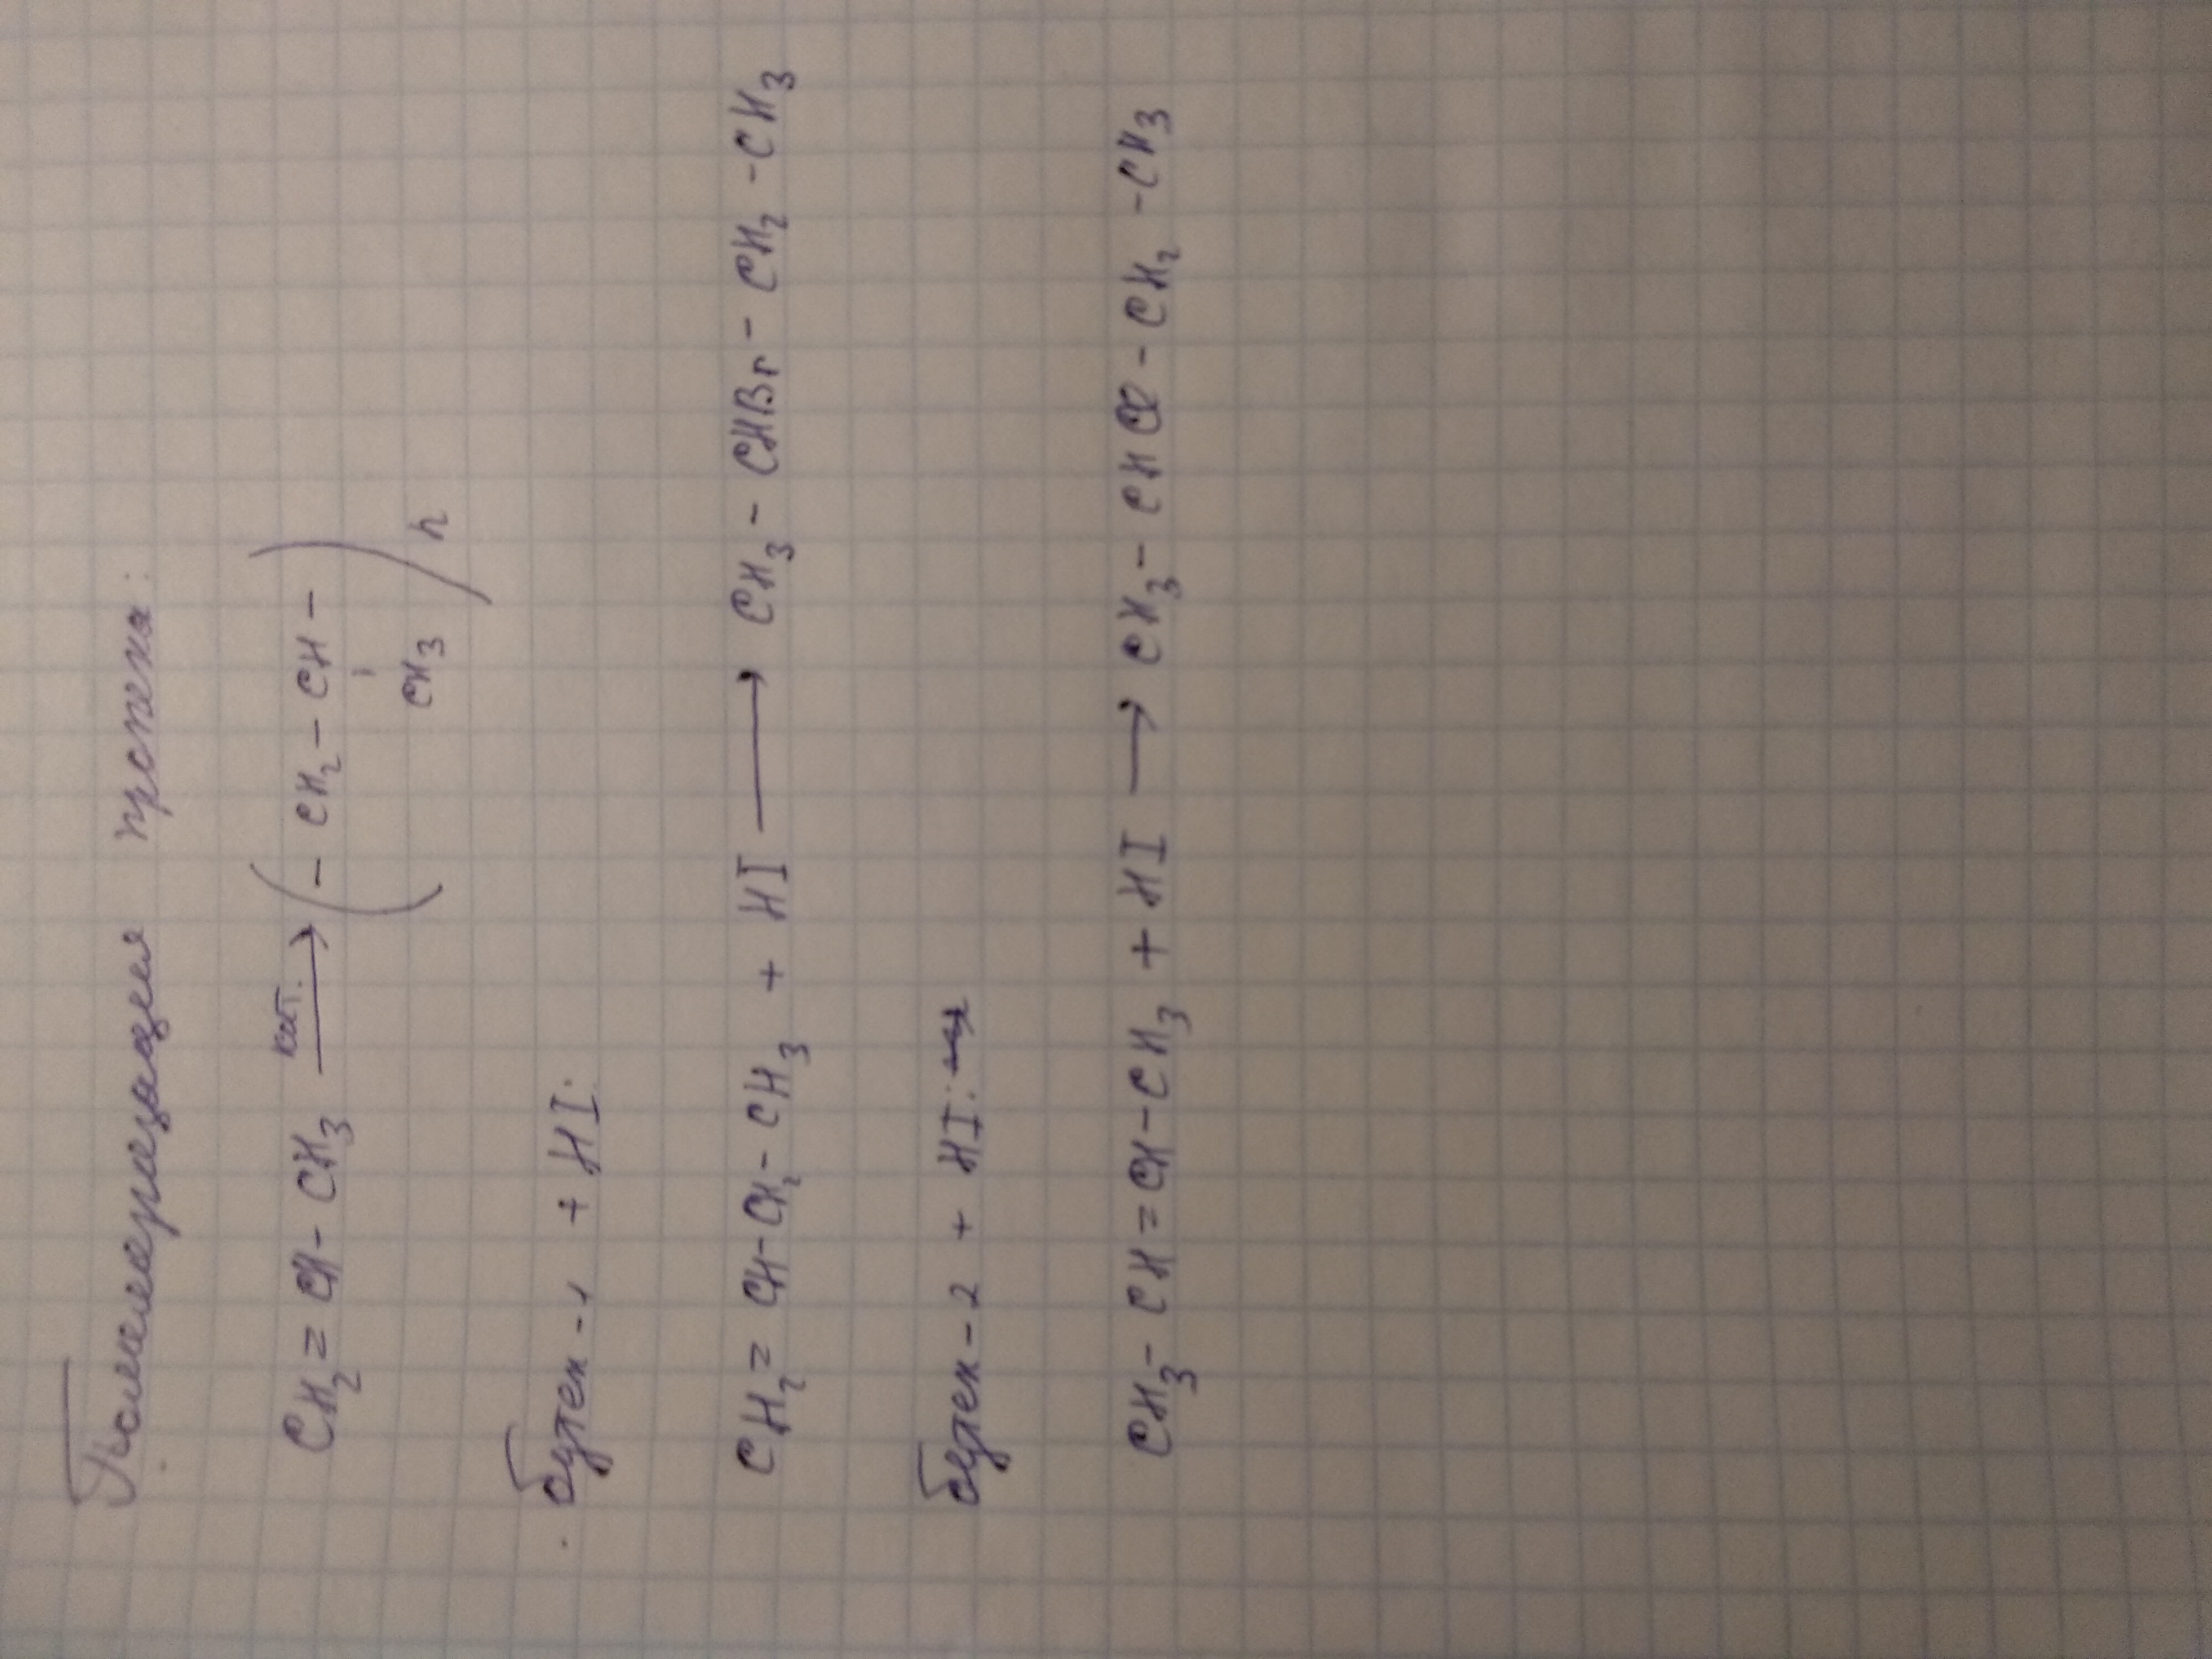 Полимеризация пропена:
CH₂ = CH - CH₃ кат. → (- CH₂ - CH -)n
CH₃
Бутен-1 + HI:
CH₂ = CH - CH₂ - CH₃ + HI → CH₃ - CHBr - CH₂ - CH₃
Бутен-2 + HI:
CH₃ - CH = CH - CH₃ + HI → CH₃ - CHCl - CH₂ - CH₃